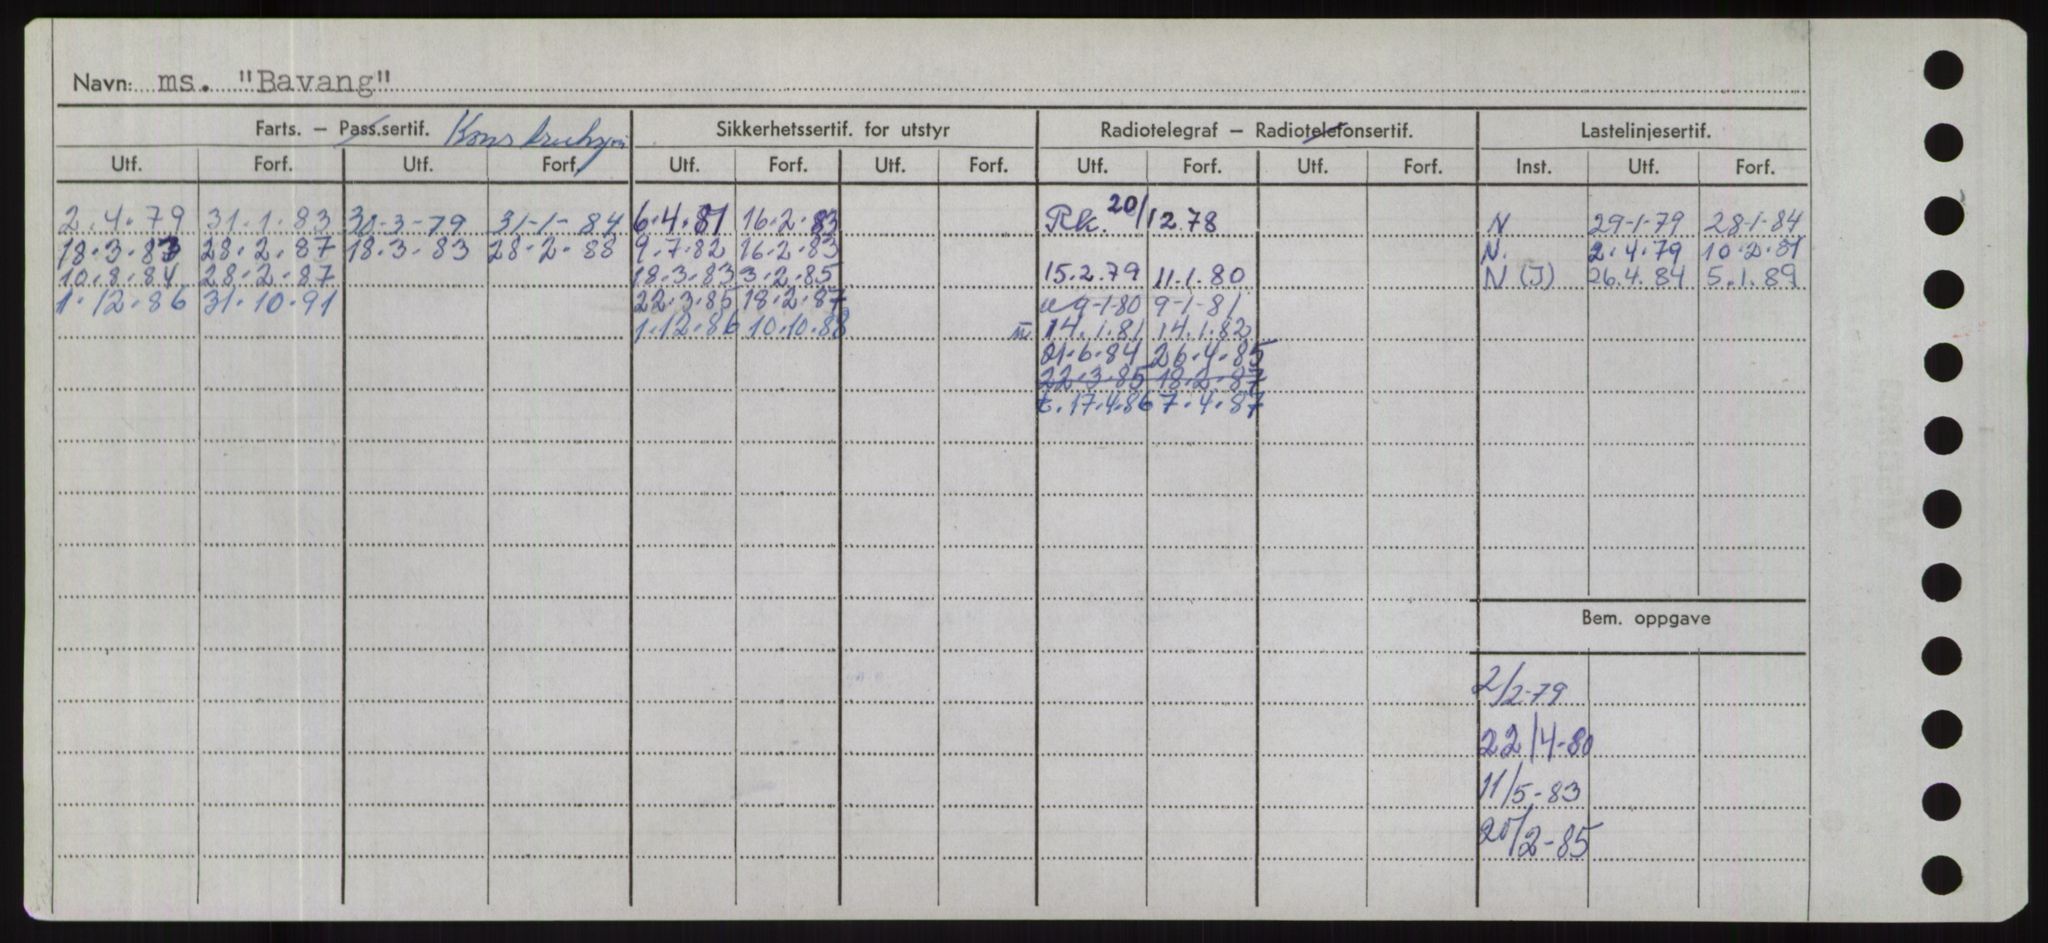 Navn: ms. "Bavang"
Farts. – Pass.sertif. Konstruksjon Sikkerhetssertif. for utstyr Radiotelegraf – Radiotelefonsertif. Lastelinjesertif.
Utf. Forf. Utf. Forf. Utf. Forf. Utf. Forf. Utf. Forf. Utf. Forf. Inst. Utf. Forf.
2.4.79 31.1.83 30-3-79 31-1-84 6.4.81 16.2.83 Rk. 20/12.78 N 29-1-79 28-1-84
18.3.83 28.2.87 18.3.83 28.2.88 9.7.82 16.2.83 N. 2.4.79 10.2.81
10.8.84 28.2.87 18.3.83 3.2.85 15.2.79 11.1.80 N (J) 26.4.84 5.1.89
1.12.86 31.10.91 22.3.85 18.2.87 9-1-80 9-1-81
1.12.86 10.10.88 14.1.81 14.1.82
21.6.84 26.4.85
22.3.85 18.2.87
t. 17.4.86 7.4.87
Bem. oppgave
2/2-79
22/4-80
11/5-83
20/2-85